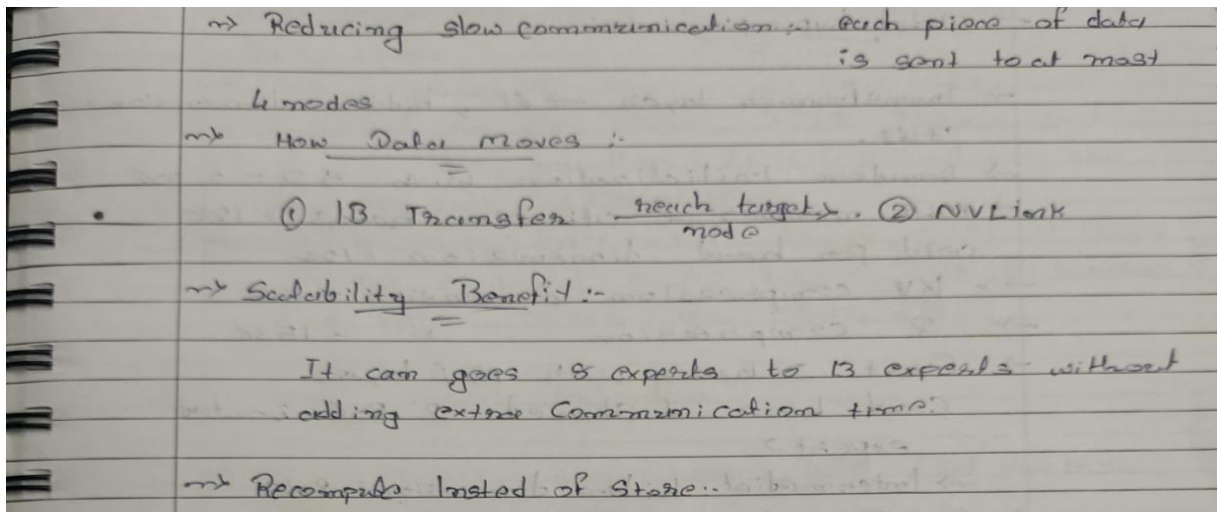 ~> Reducing slow communication :- each piece of data
is sent to at most
4 nodes
~> How Data moves :-
① IB Transfer reach target node > . ② NVLink
~> Scalability Benefit :-
It can goes 8 experts to 13 experts without
adding extra Communication time.
~> Recompute Insted of Store..